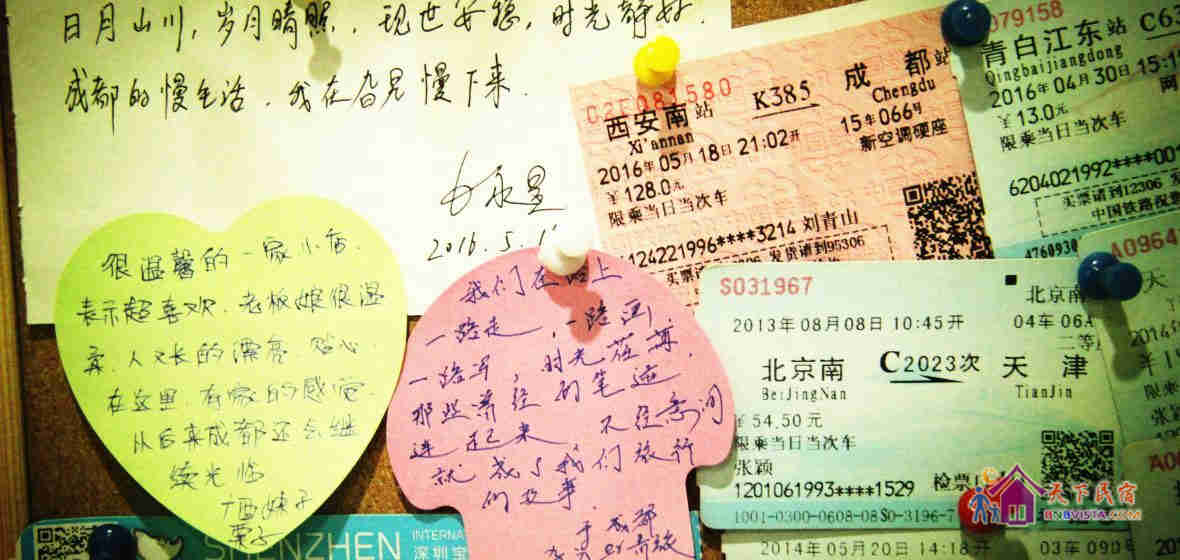 日月山川，岁月晴照，现世安稳，时光静好．
成都的慢生活，我在旮旯慢下来．
2016.5.1
很温馨的一家小店，
表示超喜欢，老板娘很温
柔，人又长的漂亮，贴心，
在这里，有家的感觉
以后来成都还会继
续光临
我们在路上
一路走，一路画，
一路写，时光荏苒，
那些流经的笔迹
连起来，不经意间
就成了我们旅行
的故事．
于成都
079158
青白江东站 C63
Qingbaijiangdong
2016年04月30日 15:1
￥13.0元 网
限乘当日当次车
6204021992****001
买票请到12306 发
中国铁路祝您
4760930
西安南站 K385 成都站
Xi'annan Chengdu
2016年05月18日21:02开 15车066号
￥128.0元 新空调硬座
限乘当日当次车
124221996****3214 刘青山
买票请到12306 发货请到95306
S031967
北京南
2013年08月08日 10:45开 04车06A
二等座
北京南 C2023次 天津
BeiJingNan TianJin
￥54.50元
限乘当日当次车
张颖
1201061993****1529 检票口
1001-0300-0608-08S0-3196-7
A0964
2014年05月20日 14:18开
SHENZHEN
INTERNA
深圳宝
天下民宿
BNBVISTA.COM